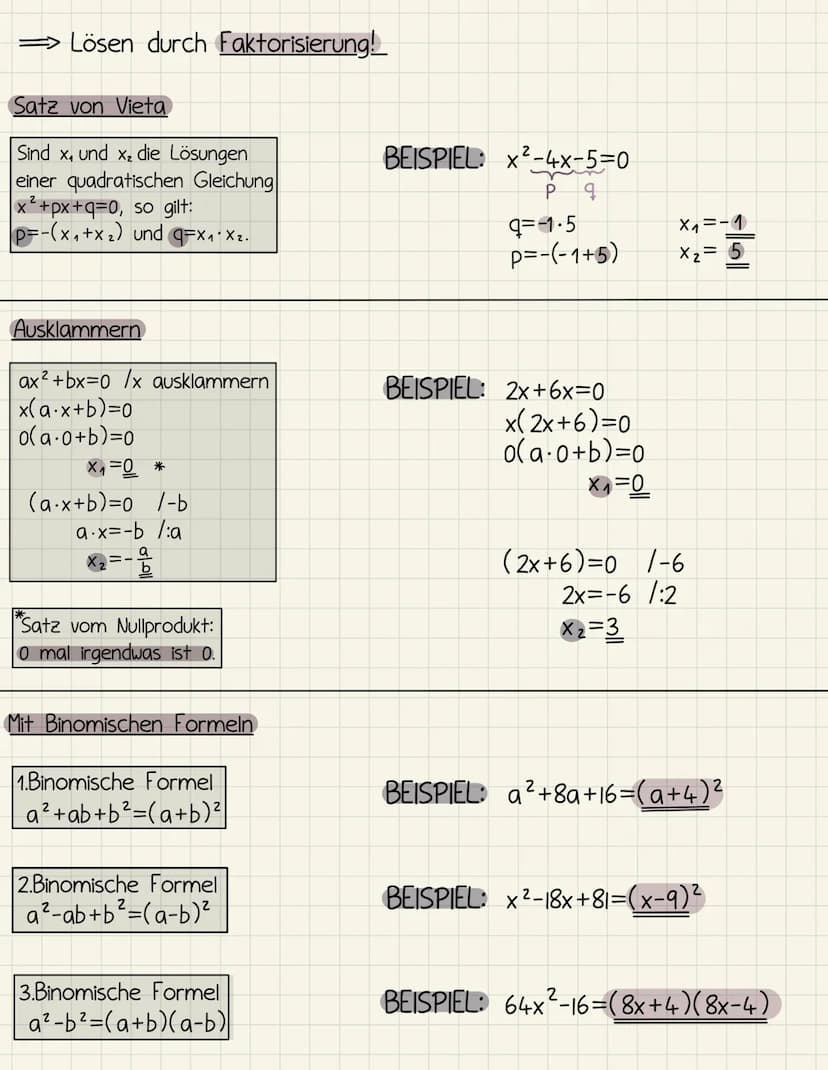 ⟹ Lösen durch Faktorisierung!
Satz von Vieta
Sind x₁ und x₂ die Lösungen
einer quadratischen Gleichung
x²+px+q=0, so gilt:
p=-(x₁+x₂) und q=x₁·x₂.
BEISPIEL: x²-4x-5=0
p q
q=-1·5
p=-(-1+5)
x₁=-1
x₂= 5
Ausklammern
ax²+bx=0 /x ausklammern
x(a·x+b)=0
0(a·0+b)=0
x₁=0 *
(a·x+b)=0 /-b
a·x=-b /:a
x₂=-a/b
*Satz vom Nullprodukt:
0 mal irgendwas ist 0.
BEISPIEL: 2x+6x=0
x(2x+6)=0
0(a·0+b)=0
x₁=0
(2x+6)=0 /-6
2x=-6 /:2
x₂=3
Mit Binomischen Formeln
1.Binomische Formel
a²+ab+b²=(a+b)²
BEISPIEL: a²+8a+16=(a+4)²
2.Binomische Formel
a²-ab+b²=(a-b)²
BEISPIEL: x²-18x+81=(x-9)²
3.Binomische Formel
a²-b²=(a+b)(a-b)
BEISPIEL: 64x²-16=(8x+4)(8x-4)